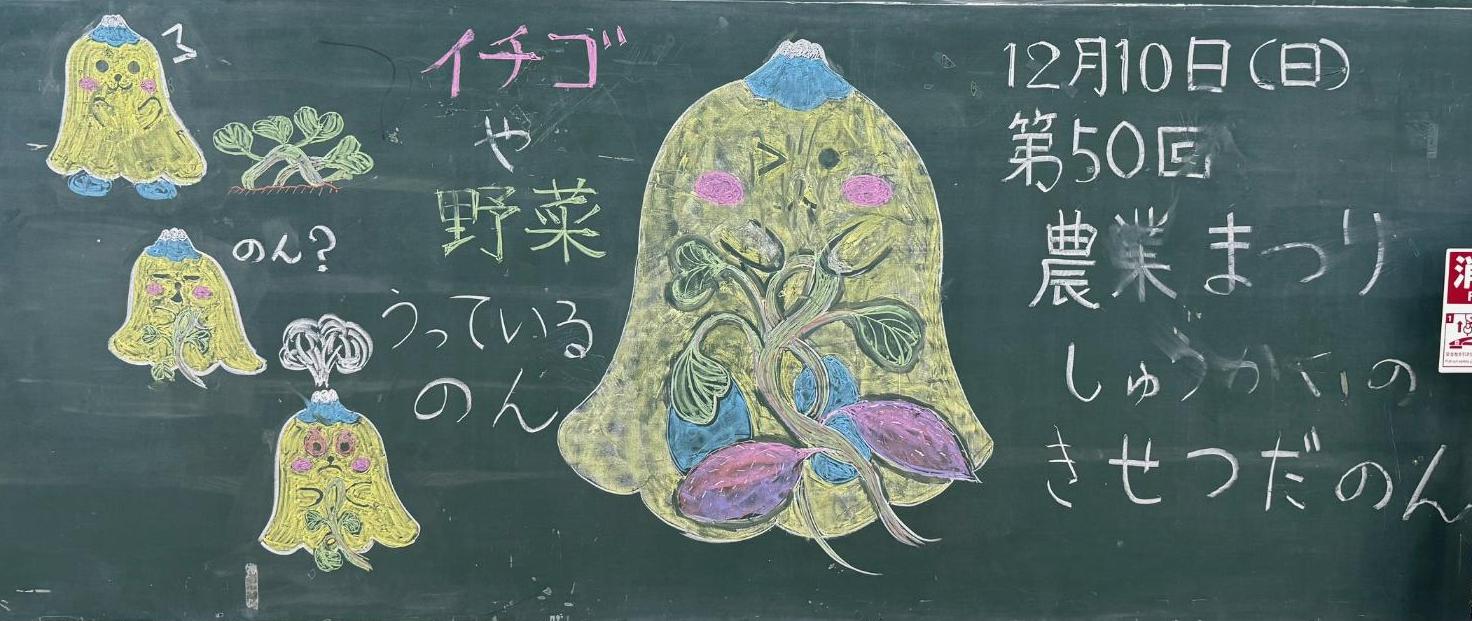 イチゴ
や
野菜
うっている
のん
のん?
12月10日(日)
第50回
農業まつり
しゅうかくの
きせつだのん
消